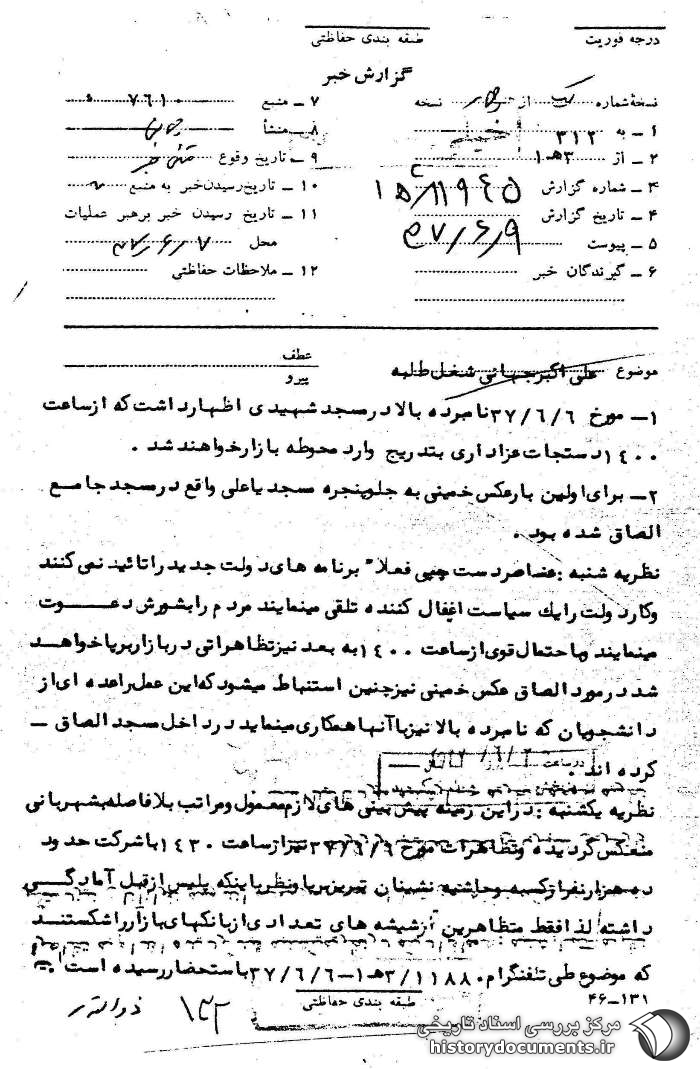 درجه فوریت
طبقه بندی حفاظتی
گزارش خبر
نسخهٔ شماره یک از چهار نسخه
۱ ـ به ۳۱۲
۲ ـ از ۳هـ۱
۳ ـ شماره گزارش
۴ ـ تاریخ گزارش ۳۷/۶/۹
۵ ـ پیوست
۶ ـ گیرندگان خبر
۷ ـ منبع ۷۶۱۰
۸ ـ منشأ
۹ ـ تاریخ وقوع متن خبر
۱۰ ـ تاریخ رسیدن خبر به منبع
۱۱ ـ تاریخ رسیدن خبر برهبر عملیات
محل ۳۷/۶/۷
۱۲ ـ ملاحظات حفاظتی
موضوع علی اکبر جهانی شغل طلبه
عطف
پیرو
۱ـ مورخ ۳۷/۶/۶ نامبرده بالا در مسجد شهیدی اظهار داشت که از ساعت
۱۴۰۰ دستجات عزاداری بتدریج وارد محوطه بازار خواهند شد .
۲ـ برای اولین بار عکس خمینی به جلو پنجره مسجد یاعلی واقع در مسجد جامع
الصاق شده بود .
نظریه شنبه : عناصر دست چپی فعلا" برنامه های دولت جدید را تائید نمی کنند
و کار دولت را یك سیاست اغفال کننده تلقی مینمایند مردم را بشورش دعــوت
مینمایند و باحتمال قوی از ساعت ۱۴۰۰ به بعد نیز تظاهراتی در بازار برپا خواهد
شد در مورد الصاق عکس خمینی نیز چنین استنباط میشود که این عمل را عده ای از
دانشجویان که نامبرده بالا نیز با آنها همکاری مینماید در داخل مسجد الصاق ـ
کرده اند .
نظریه یکشنبه : در این زمینه پیش بینی های لازم معمول و مراتب بلافاصله بشهربانی
منعکس گردیده و تظاهرات مورخ ۳۷/۶/۶ نیز از ساعت ۱۴۳۰ با شرکت حدود
ده هزار نفر از کسبه و حاشیه نشینان تبریز برپا و نظر باینکه پلیس از قبل آمادگــی
داشته لذا فقط متظاهرین از شیشه های تعدادی از بانکهای بازار را شکستند
که موضوع طی تلفنگرام ۳/۱۱۸۸۰هـ۱ـ۳۷/۶/۶ باستحضار رسیده است
طبقه بندی حفاظتی
۴۶ـ۱۳۱
مرکز بررسی اسناد تاریخی
historydocuments.ir